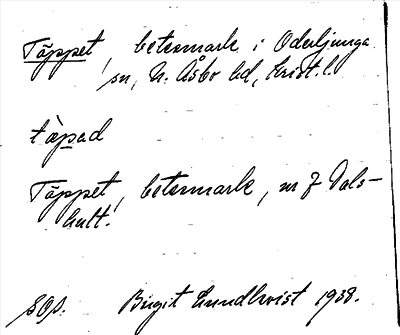 Täppet, betesmark i Oderljunga
sn, N. Åsbo hd, Krist. l.
täpad
Täppet, betesmark, nr 7 Dals-
hult.
SOS. Birgit Lundkvist 1938.